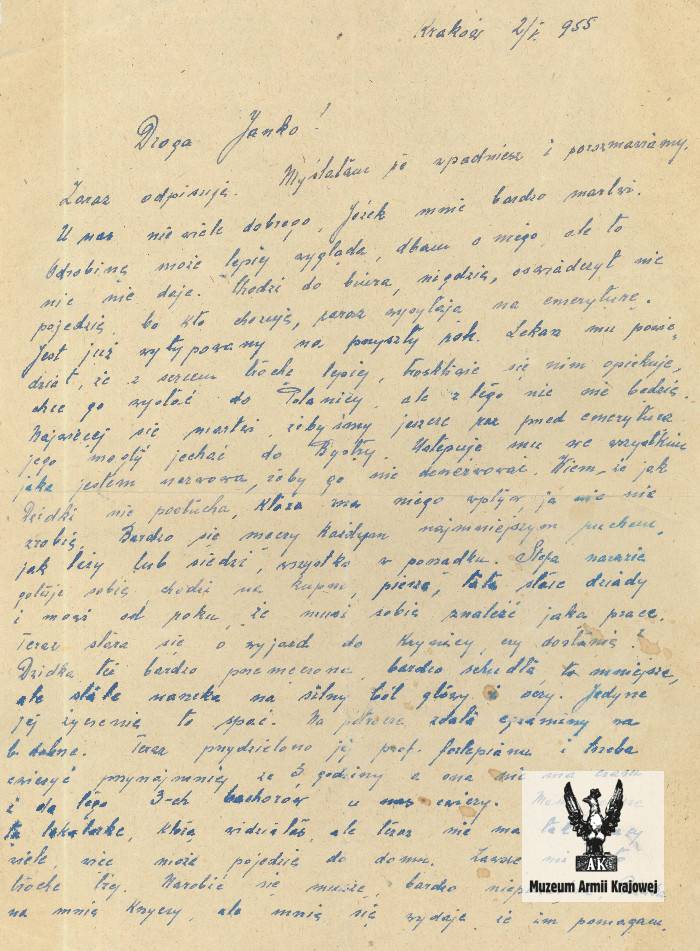 Kraków 2/V. 955
Droga Janko!
Zaraz odpisuję. Myślałam że wpadniesz i porozmawiamy.
U nas niewiele dobrego, Józek mnie bardzo martwi.
Odrobinę może lepiej wygląda, dbam o niego ale to
nic nie daje. Chodzi do biura, nigdzie, oświadczył nie
pojedzie bo kto choruje, zaraz wysyłają na emeryturę.
Jest już wytypowany na przyszły rok. Lekarz mu powie-
dział, że z sercem trochę lepiej, troskliwie się nim opiekuje,
chce go wysłać do Polanicy, ale z tego nic nie będzie.
Najwięcej się martwi, żebyśmy jeszcze raz przed emeryturą
jego mogły jechać do Bystry. Ustępuję mu we wszystkim
jaka jestem nerwowa, żeby go nie denerwować. Wiem, że jak
Dzidki nie posłucha, która ma niego wpływ, ja nic nie
zrobię. Bardzo się męczy każdym najmniejszym ruchem,
jak leży lub siedzi, wszystko w porządku. Stefa narazie
gotuje sobie, chodzi na kupno, pierze, ta stare dziady
i mówi od roku, że musi sobie znaleść jaka pracę.
Teraz stara się o wyjazd do Krynicy, czy dostanie?
Dzidka też bardzo przemęczona, bardzo schudła, to mniejsze,
ale stale narzeka na silny ból głowy i oczy. Jedyne
jej życzenie to spać. Na półrocze zdała egzaminy na
b. dobre. Teraz przydzielono jej prof. fortepianu i trzeba
ćwiczyć przynajmniej ze 3 godziny a ona nie ma czasu
i do tego 3-ch bachorów u nas ćwiczy.
ta lokatorkę, którą widziałaś, ale teraz nie ma
wiele więc może pojedzie do domu. Zawsze
trochę lżej. Narobić się muszę, bardzo
na mnie krzyczy, ale mnie się wydaje, że im pomagam.
AK
Muzeum Armii Krajowej